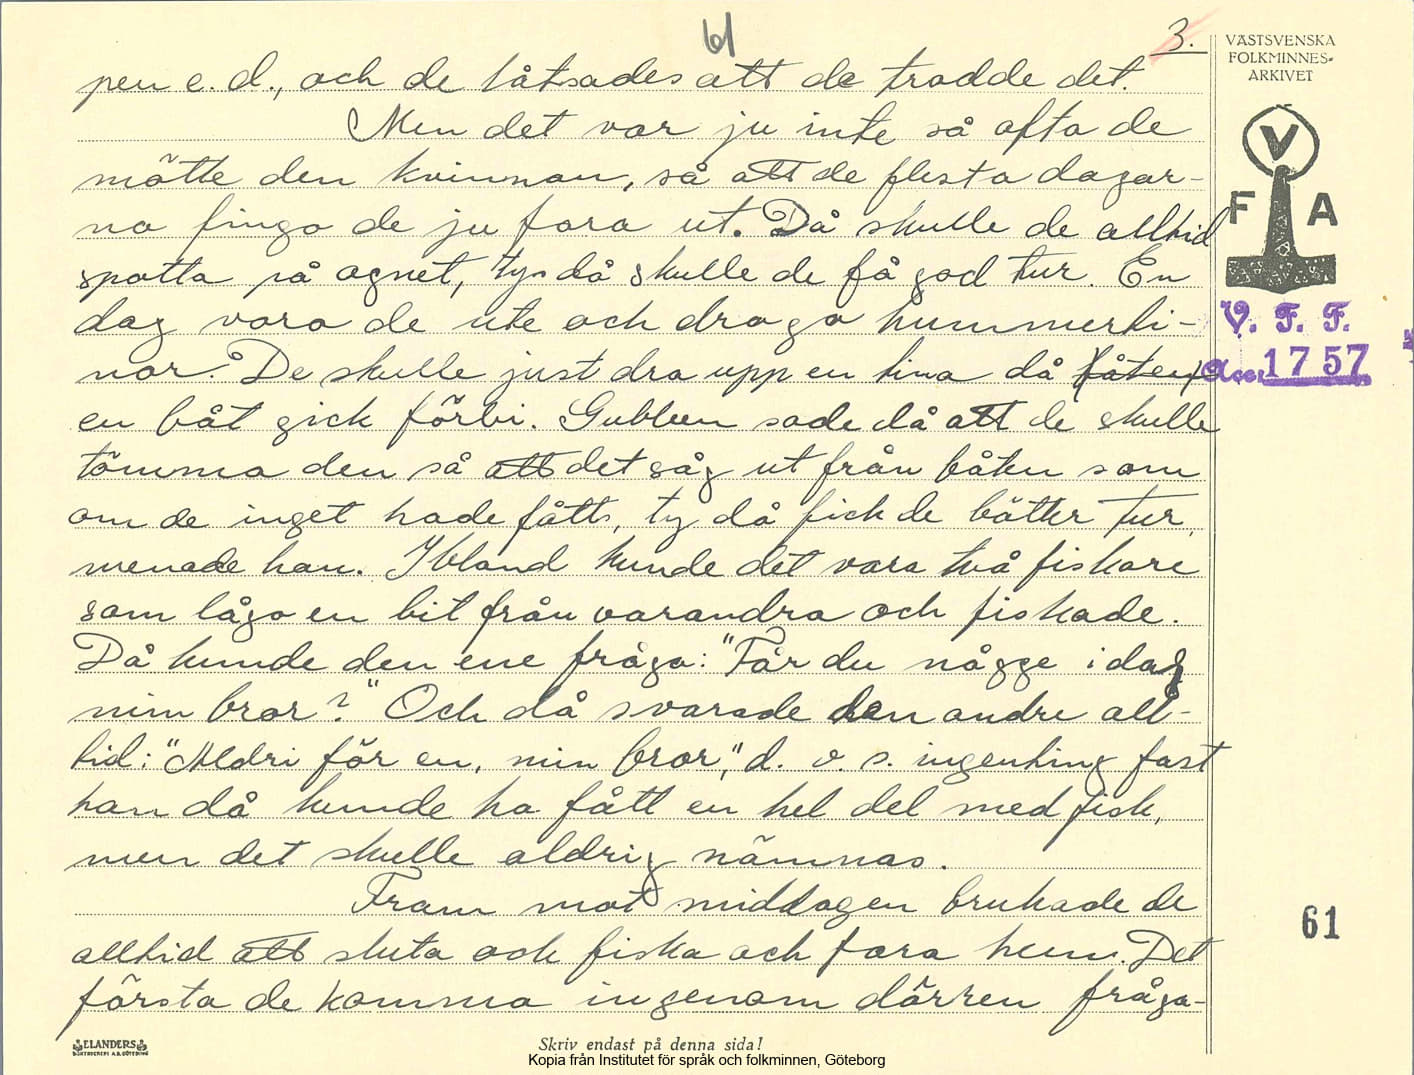 61
3.
VÄSTSVENSKA
FOLKMINNES-
ARKIVET
V
F A
V. F. F.
Acc. 1757
pen e. d., och de låtsades att de trodde det.
Men det var ju inte så ofta de
mötte den kvinnan, så att de flesta dagar-
na fingo de ju fara ut. Då skulle de alltid
spotta på agnet, ty då skulle de få god tur. En
dag voro de ute och drogo hummerti-
nor. De skulle just dra upp en tina då båten
en båt gick förbi. Gubben sade då att de skulle
tömma den så att det såg ut från båten som
om de inget hade fått, ty då fick de bätter tur,
menade han. Ibland kunde det vara två fiskare
som lågo en bit från varandra och fiskade.
Då kunde den ene fråga: "Får du någge idag
min bror?" Och då svarade den andre all-
tid: "Aldri för en, min bror," d. v. s. ingenting fast
han då kunde ha fått en hel del med fisk,
men det skulle aldrig nämnas.
Fram mot middagen brukade de
alltid att sluta och fiska och fara hem. Det
första de komma ingenom dörren fråga-
61
ELANDERS
BOKTRYCKERI A.B. GÖTEBORG
Skriv endast på denna sida!
Kopia från Institutet för språk och folkminnen, Göteborg